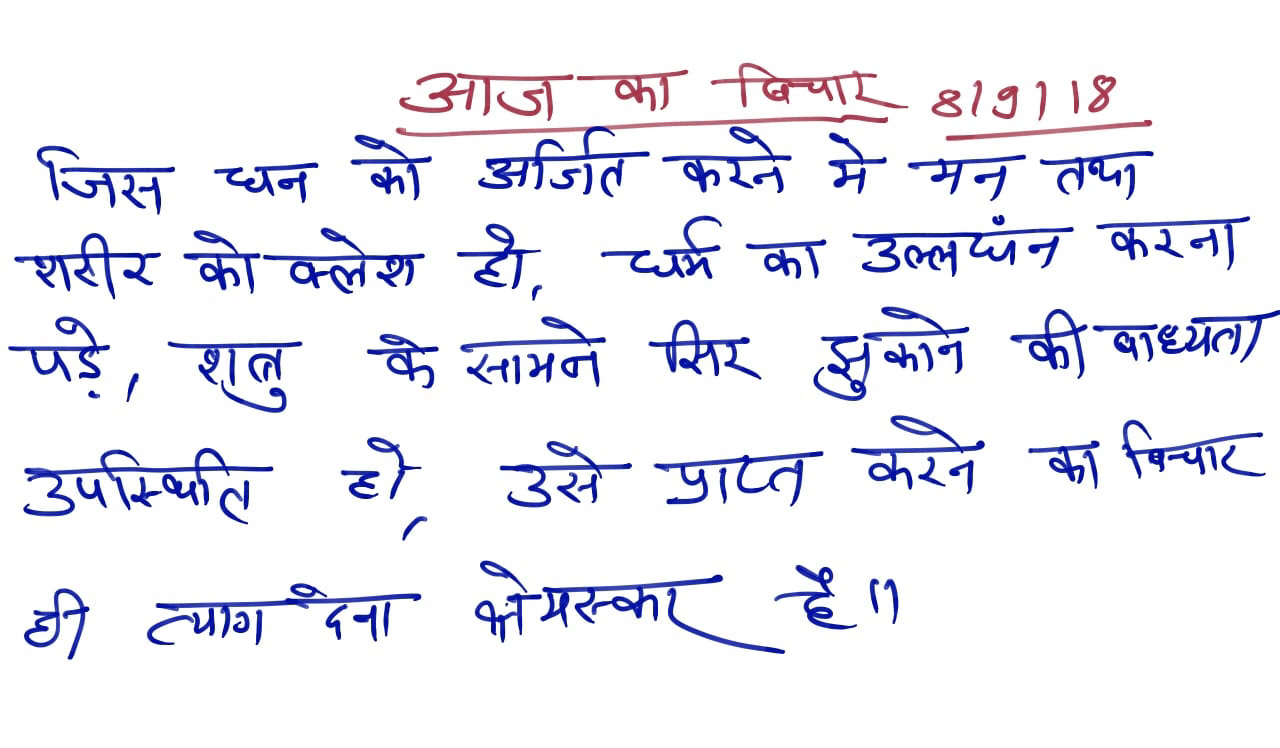 आज का विचार 8/9/18
जिस धन को अर्जित करने मे मन तथा
शरीर को क्लेश हो, धर्म का उल्लघंन करना
पड़े, शत्रु के सामने सिर झुकाने की बाध्यता
उपस्थित हो, उसे प्राप्त करने का विचार
ही त्याग देना श्रेयस्कर है॥